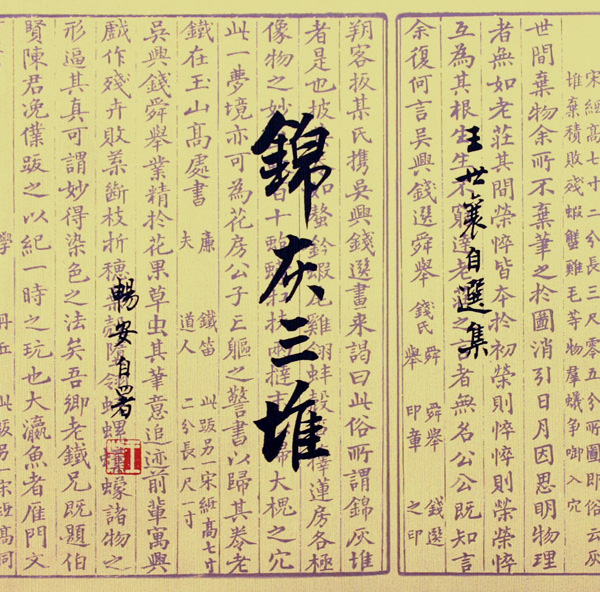 錦灰三堆
王世襄自選集
暢安自署
宋紙高七十二分長三尺零五分所圖即俗云灰
堆棄積敗殘蝦蟹雞毛等物羣蟻爭啣入穴
世間棄物余所不棄筆之於圖消引日月因思明物理
者無如老莊其間榮悴皆本於初榮則悴悴則榮榮悴
互為其根生生不窮達老之言者無名公公既知言
余復何言吳興錢選舜舉 錢氏 舜舉 舜舉印章 錢選之印
朔客扳某氏攜吳興錢選畫來謁曰此俗所謂錦灰堆
者是也披螯鈐蝦尾雞翎蚌殼擇蓮房各極
像物之妙大槐之穴
此一夢境亦可為花房公子亡軀之警書以歸其券老
鐵在玉山高處書 廉夫 鐵笛道人 此跋另一宋紙高七寸二分長一尺一寸
吳興錢舜舉業精於花果草虫其筆意追迹前輩寓興
戲作殘卉敗素斷枝折穗螺蠔諸物之
形逼其真可謂妙得染色之法矣吾卿老鐵兄既題伯
賢陳君浼僕跋之以紀一時之玩也大瀛魚者雁門文
學 丹丘 此跋另一宋紙高同